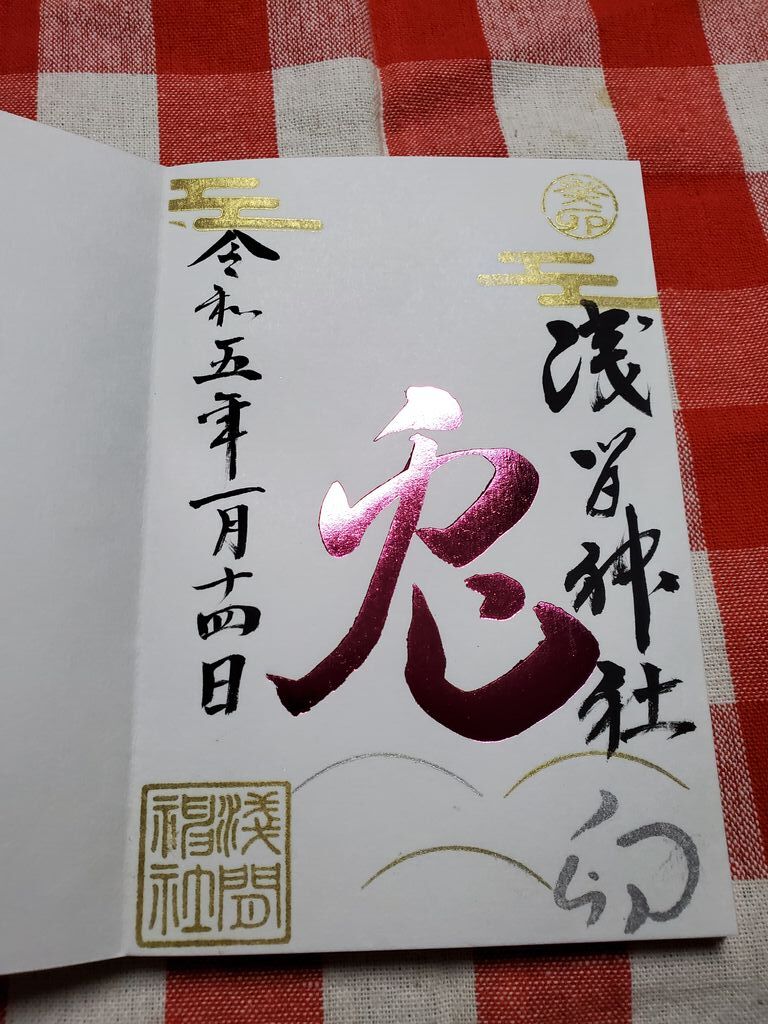 癸卯
浅間神社
兎
卯
令和五年一月十四日
淺間
神社